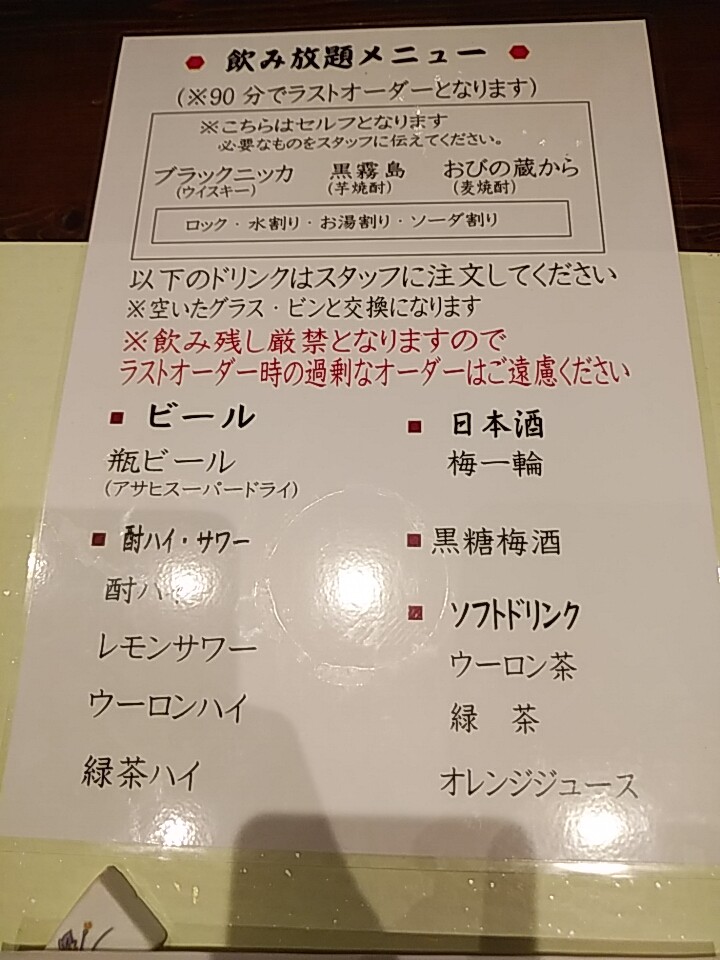 飲み放題メニュー
(※90 分でラストオーダーとなります)
※こちらはセルフとなります
必要なものをスタッフに伝えてください。
ブラックニッカ 黒霧島 おびの蔵から
(ウイスキー) (芋焼酎) (麦焼酎)
ロック・水割り・お湯割り・ソーダ割り
以下のドリンクはスタッフに注文してください
※空いたグラス・ビンと交換になります
※飲み残し厳禁となりますので
ラストオーダー時の過剰なオーダーはご遠慮ください
■ ビール
瓶ビール
(アサヒスーパードライ)
■ 酎ハイ・サワー
酎ハイ
レモンサワー
ウーロンハイ
緑茶ハイ
■ 日本酒
梅一輪
■ 黒糖梅酒
■ ソフトドリンク
ウーロン茶
緑 茶
オレンジジュース